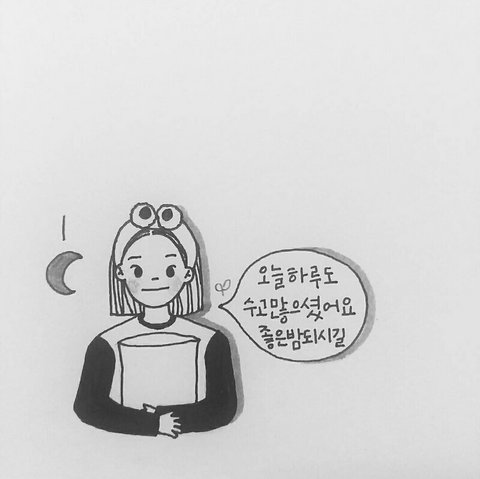 오늘하루도
수고많으셨어요
좋은밤되시길